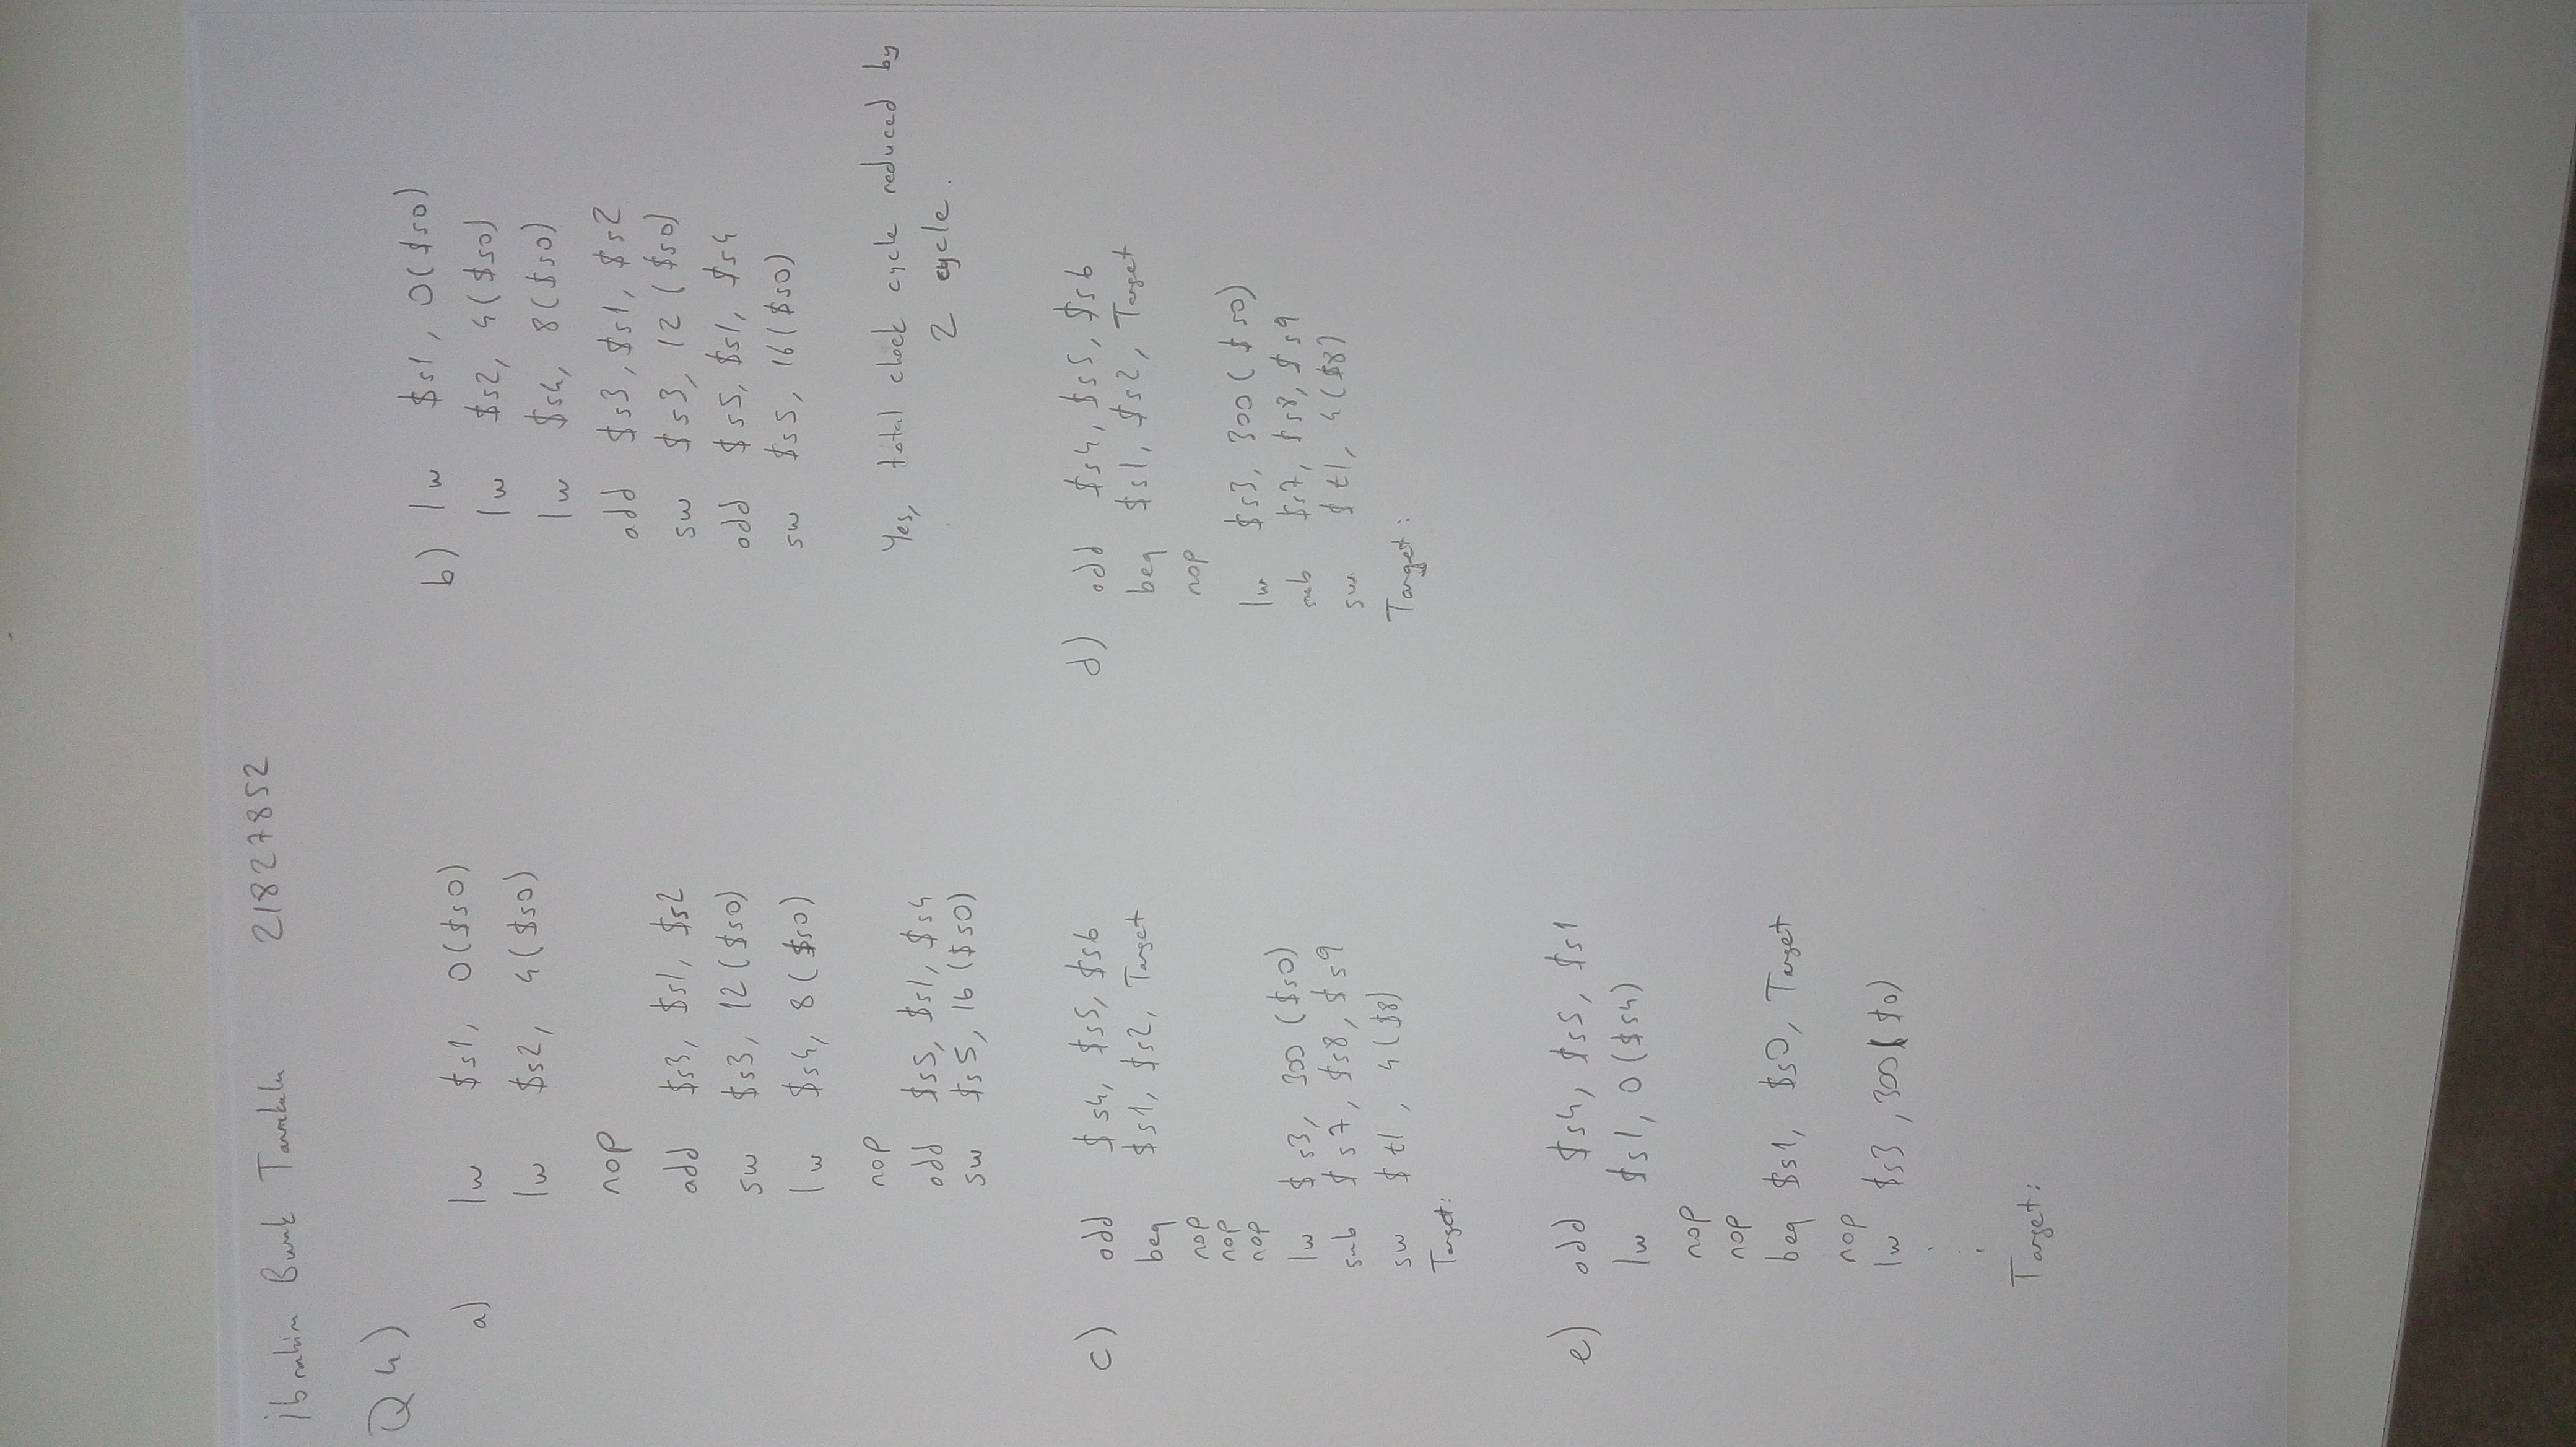 İbrahim Burak Tanrıkulu 21827852
Q4)
a) lw $s1, 0($s0)
lw $s2, 4($s0)
nop
add $s3, $s1, $s2
sw $s3, 12($s0)
lw $s4, 8($s0)
nop
add $s5, $s1, $s4
sw $s5, 16($s0)
b) lw $s1, 0($s0)
lw $s2, 4($s0)
lw $s4, 8($s0)
add $s3, $s1, $s2
sw $s3, 12($s0)
add $s5, $s1, $s4
sw $s5, 16($s0)
Yes, total clock cycle reduced by
2 cycle.
c) add $s4, $s5, $s6
beq $s1, $s2, Target
nop
nop
nop
lw $s3, 300($s0)
sub $s7, $s8, $s9
sw $t1, 4($8)
Target:
d) add $s4, $s5, $s6
beq $s1, $s2, Target
nop
lw $s3, 300($s0)
sub $s7, $s8, $s9
sw $t1, 4($8)
Target:
e) add $s4, $s5, $s1
lw $s1, 0($s4)
nop
nop
beq $s1, $s0, Target
nop
lw $s3, 300($0)
.
.
.
Target: